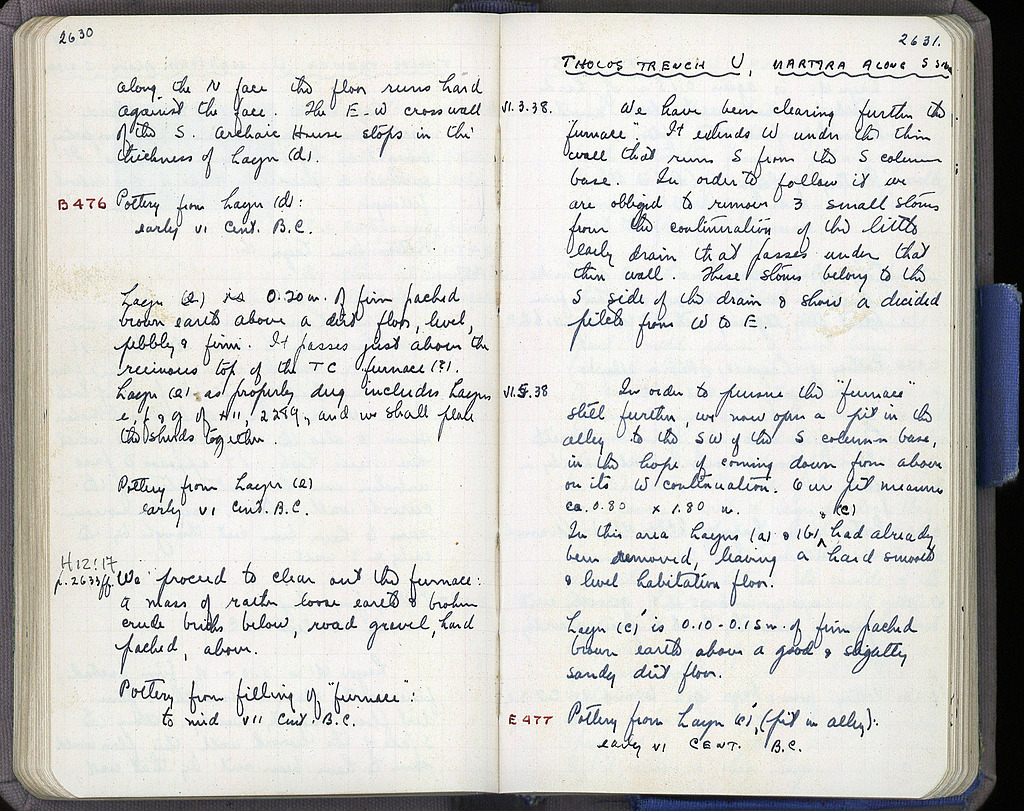 2630
along the N face the floor runs hard
against the face. The E-W cross wall
of the S. Archaic House stops in the
thickness of Layer (d).
B 476 Pottery from Layer (d):
early VI Cent. B.C.
Layer (e) is 0.20 m. of firm packed
brown earth above a dirt floor, level,
pebbly & firm. It passes just above the
ruinous top of the TC furnace (?).
Layer (e) as properly dug includes Layers
e, f & g of 2259, and we shall place
the sherds together.
Pottery from Layer (e)
early VI Cent. B.C.
H 12:17
p. 2633ff. We proceed to clear out the furnace:
a mass of rather loose earth & broken
crude bricks below, road gravel, hard
packed, above.
Pottery from filling of "furnace":
to mid VII Cent. B.C.
2631.
THOLOS TRENCH U, MARTYRA ALONG S
VI.3.38. We have been clearing further the
"furnace". It extends W under the thin
wall that runs S from the S column
base. In order to follow it we
are obliged to remove 3 small stones
from the continuation of the little
early drain that passes under that
thin wall. These stones belong to the
S side of the drain & show a decided
pitch from W to E.
VI.5.38 In order to pursue the "furnace"
still further, we now open a pit in the
alley to the SW of the S column base,
in the hope of coming down from above
on its W continuation. Our pit measures
ca. 0.80 x 1.80 m.
In this area Layers (a) & (b) & (c) had already
been removed, leaving a hard smooth
& level habitation floor.
Layer (c)' is 0.10 - 0.15 m. of firm packed
brown earth above a good & slightly
sandy dirt floor.
E 477 Pottery from Layer (c)', (pit in alley):
early VI CENT. B.C.